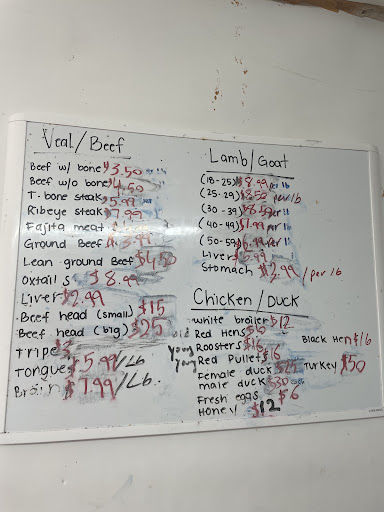 Veal/Beef
Beef w/ bone $3.50 per lb
Beef w/o bone $4.50
T-bone steak $5.99
Ribeye steak $7.99
Fajita meat
Ground Beef $3.99
Lean ground Beef $4.50
Oxtails $8.99
Liver $2.99
Beef head (small) $15
Beef head (big) $25
Tripe $3
Tongue $5.99/Lb
Brain $7.99/Lb
Lamb/Goat
(18-25) $8.99 per lb
(25-29) $8.50 per lb
(30-39) $8.50 per lb
(40-49) $7.99 per lb
(50-59) $6.99 per lb
Liver $5.99
Stomach $12.99/per lb
Chicken/Duck
White broiler $12
old Red Hens $6
Black Hen $16
Young Roosters $16
Young Red Pullet $16
Female duck $25
Turkey $50
male duck $30
Fresh eggs $6
Honey $12